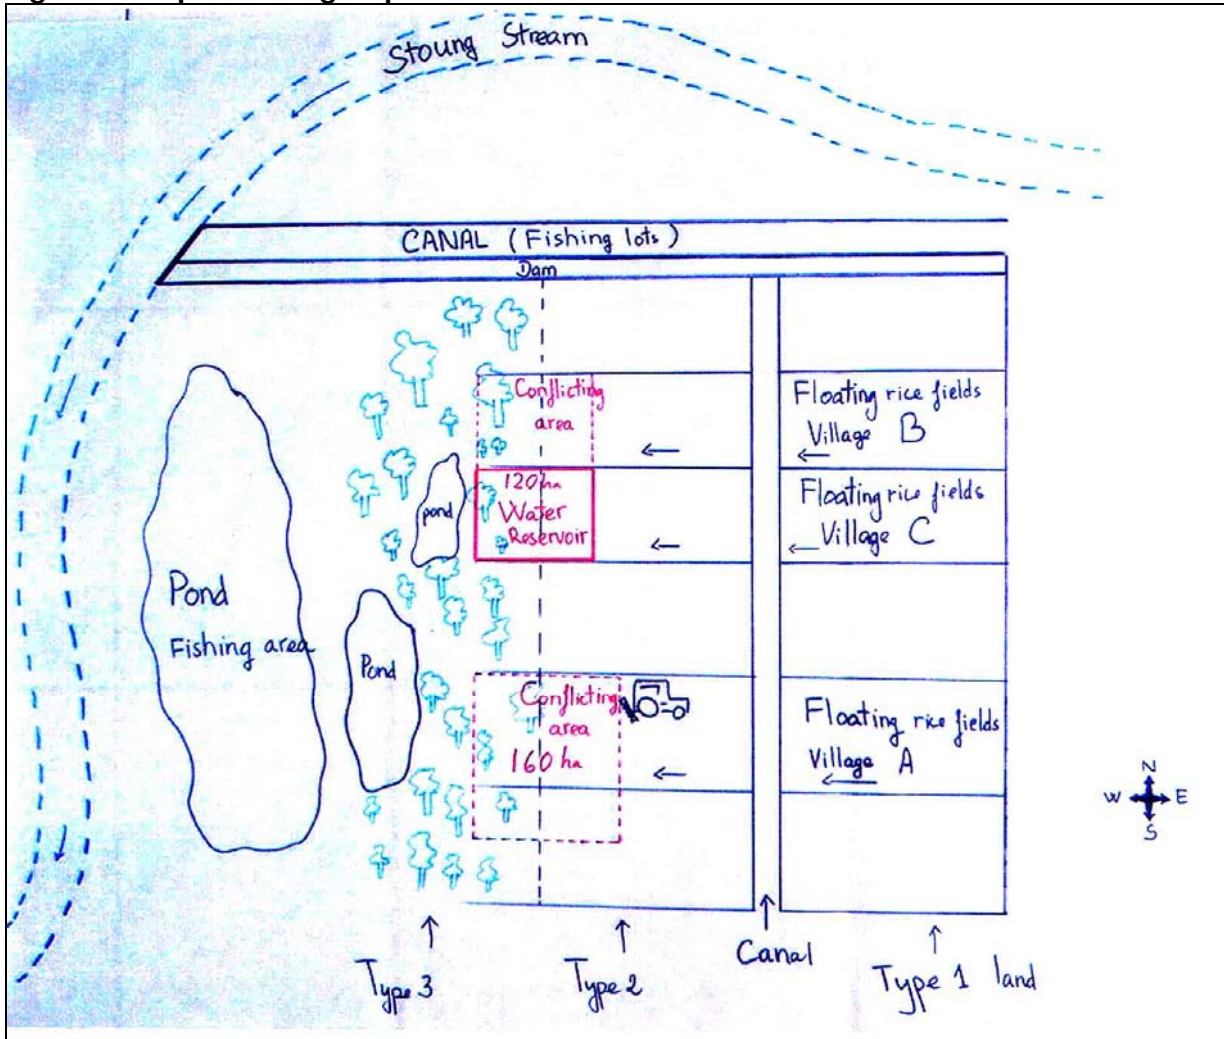 Stoung Stream
CANAL (Fishing lots)
Dam
Conflicting
area
Floating rice fields
Village B
120 ha
Water
Reservoir
Floating rice fields
Village C
pond
Pond
Fishing area
Pond
Conflicting
area
160 ha
Floating rice fields
Village A
N
W E
S
Type 3
Type 2
Canal
Type 1 land